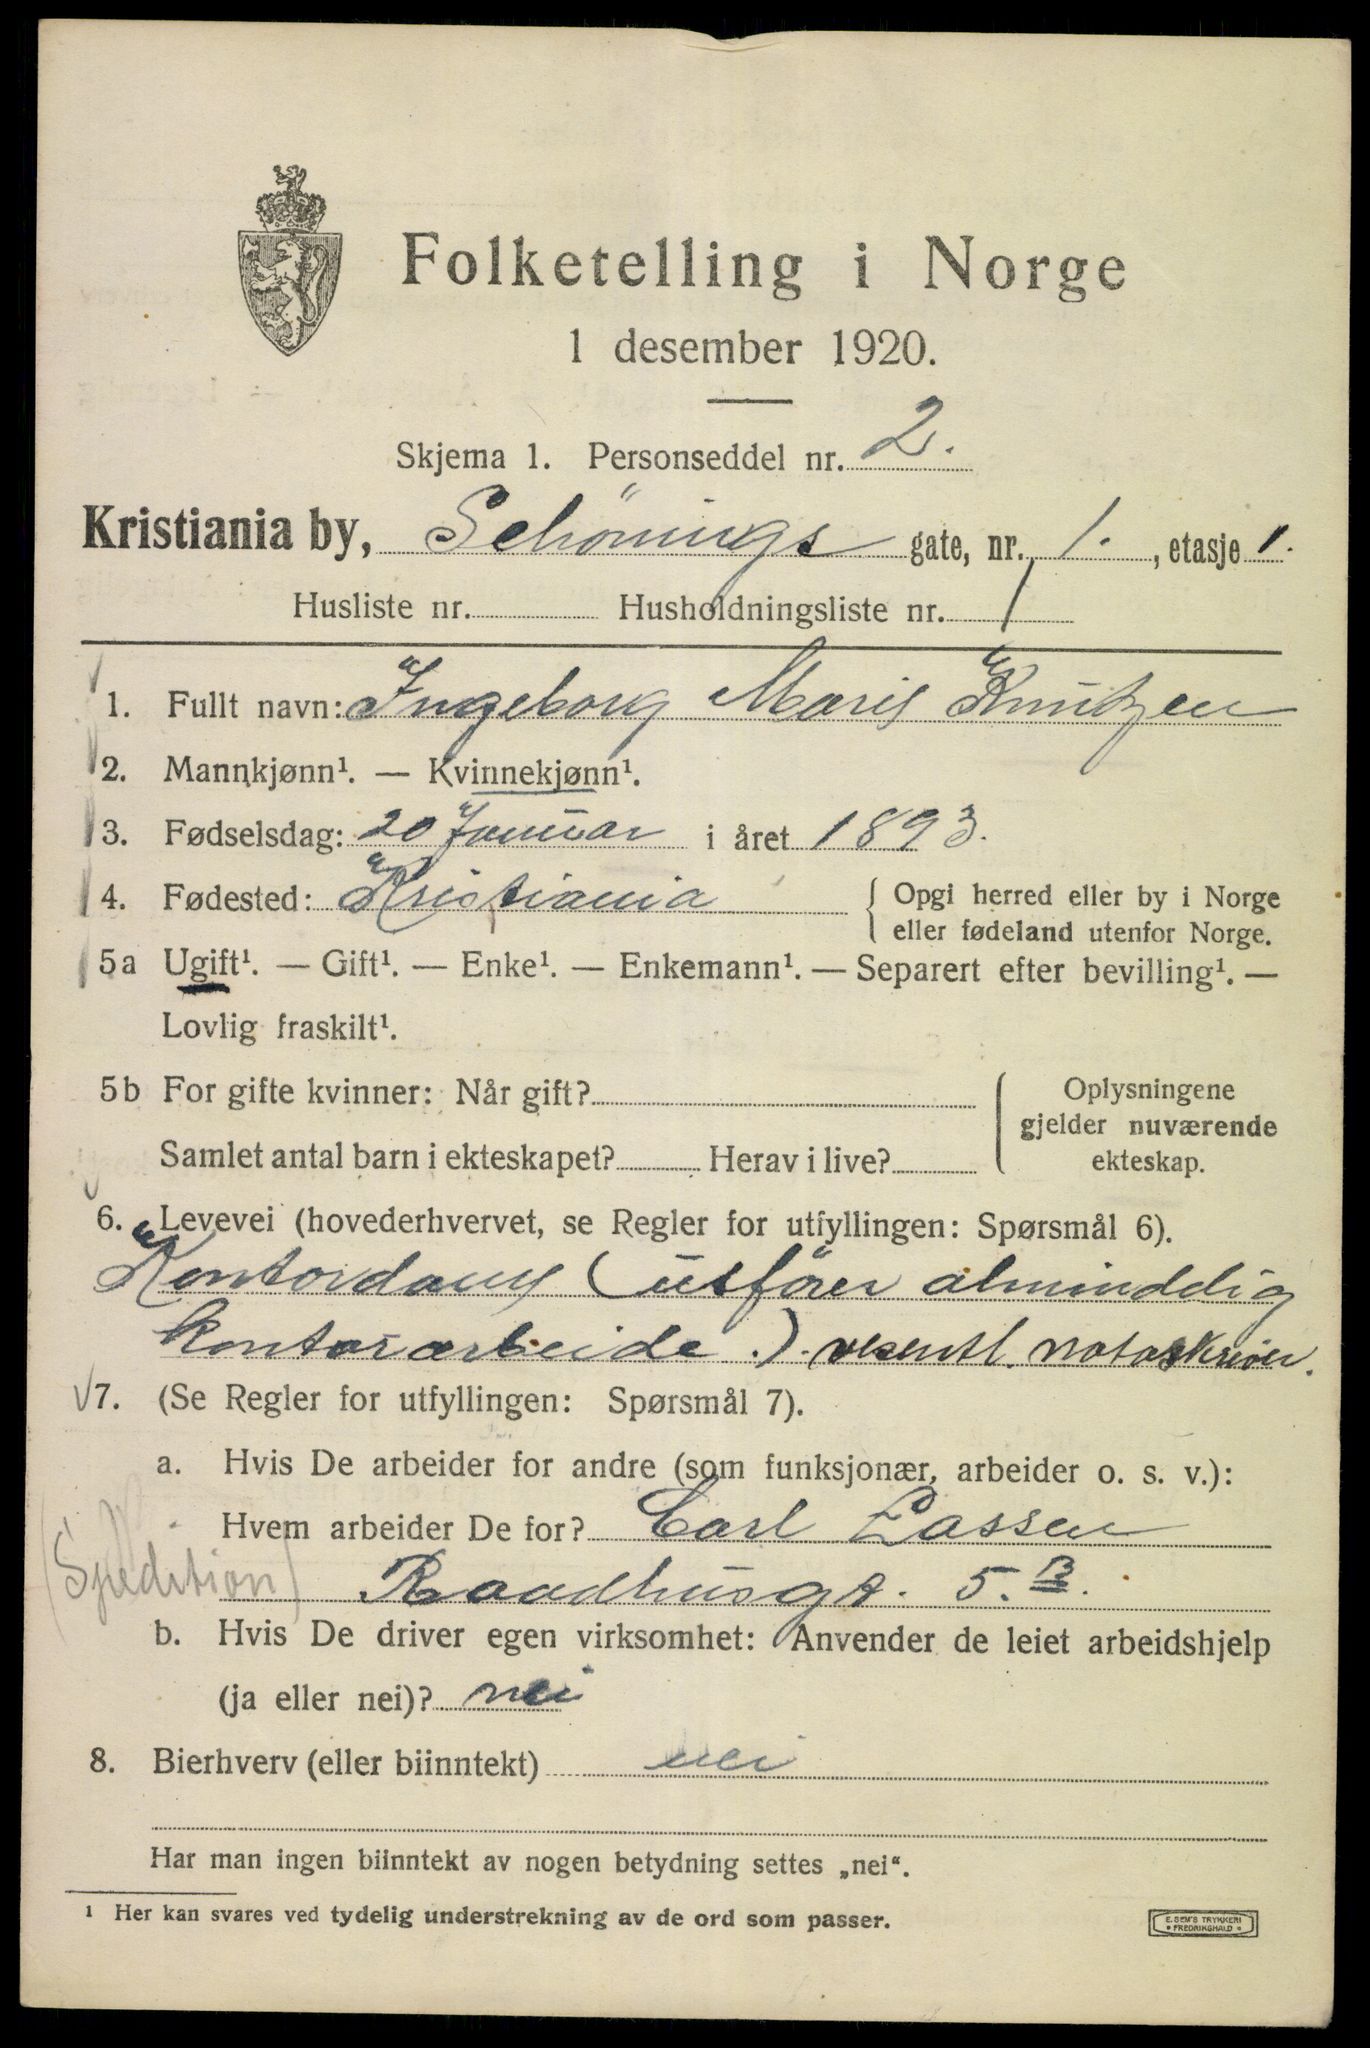 Folketelling i Norge
1 desember 1920.
Skjema 1. Personseddel nr. 2.
Kristiania by, Schönings gate, nr. 1. , etasje 1.
Husliste nr. Husholdningsliste nr. 1
1. Fullt navn: Ingeborg Marie Knutzen
2. Mannkjønn¹. — Kvinnekjønn¹.
3. Fødselsdag: 20 Januar i året 1893.
4. Fødested: Kristiania { Opgi herred eller by i Norge
eller fødeland utenfor Norge.
5a Ugift¹. — Gift¹. — Enke¹. — Enkemann¹. — Separert efter bevilling¹. —
Lovlig fraskilt¹.
5b For gifte kvinner: Når gift? Oplysningene
gjelder nuværende
Samlet antal barn i ekteskapet? Herav i live? ekteskap.
6. Levevei (hovederhvervet, se Regler for utfyllingen: Spørsmål 6).
Kontordame (utfører almindelig
kontorarbeide.). vesentl. notaskriver.
7. (Se Regler for utfyllingen: Spørsmål 7).
a. Hvis De arbeider for andre (som funksjonær, arbeider o. s. v.):
Hvem arbeider De for? Carl Lassen
(Spedition) Raadhusgt. 5.B.
b. Hvis De driver egen virksomhet: Anvender de leiet arbeidshjelp
(ja eller nei)? nei
8. Bierhverv (eller biinntekt) nei
Har man ingen biinntekt av nogen betydning settes „nei“.
¹ Her kan svares ved tydelig understrekning av de ord som passer.
E. SEM'S TRYKKERI
• FREDRIKSHALD •